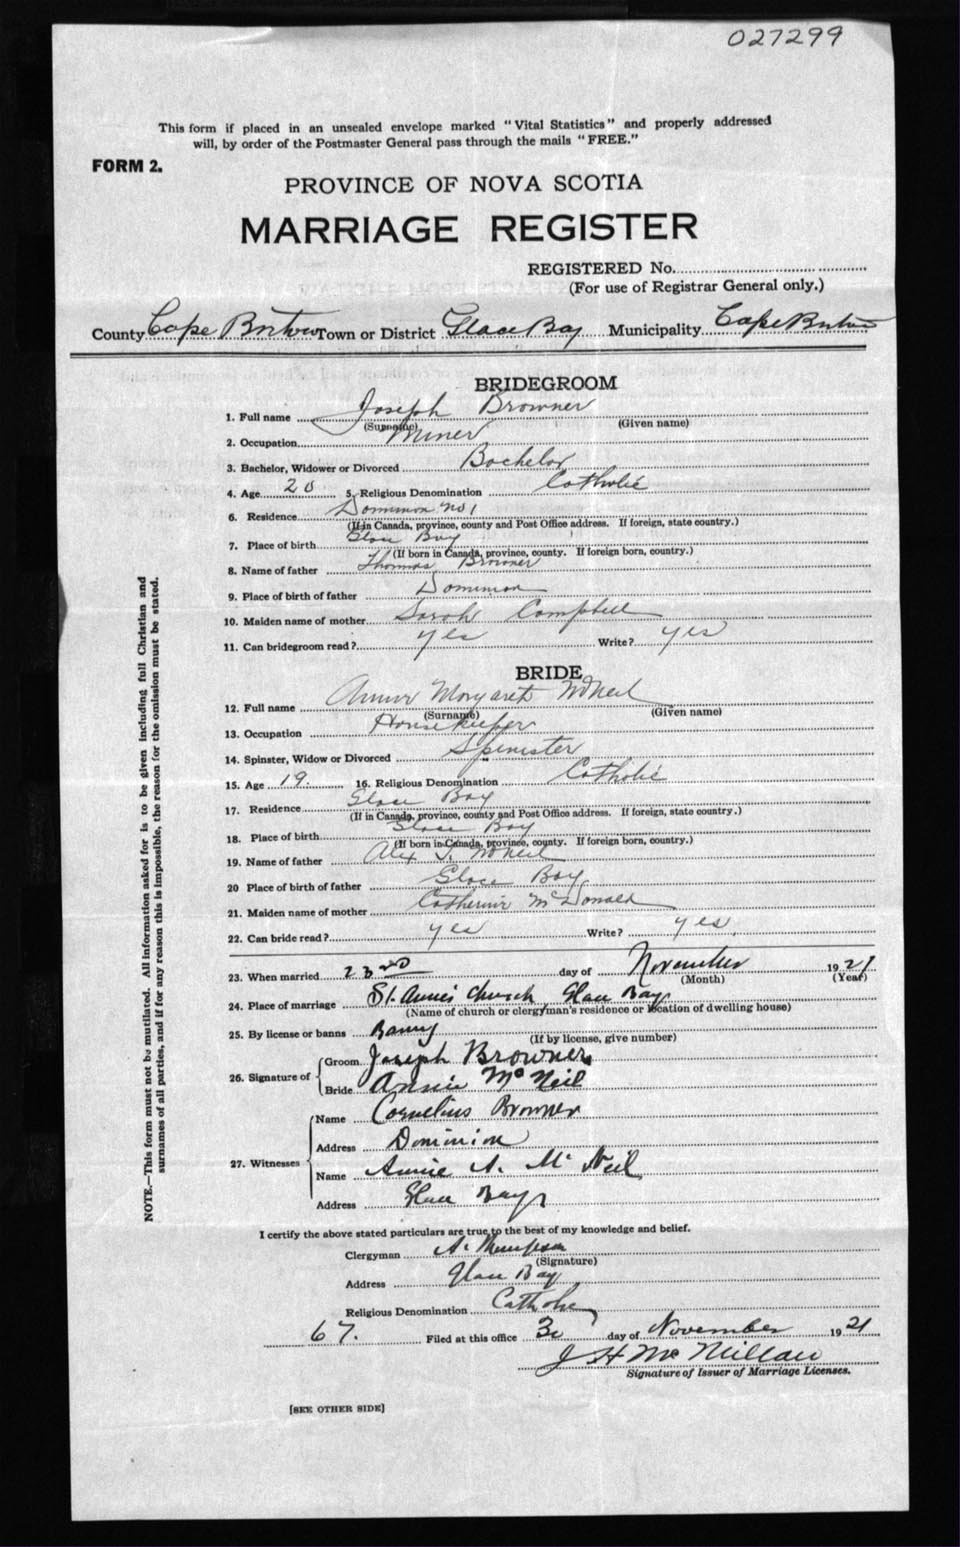 027299
This form if placed in an unsealed envelope marked "Vital Statistics" and properly addressed
will, by order of the Postmaster General pass through the mails "FREE."
FORM 2.
PROVINCE OF NOVA SCOTIA
MARRIAGE REGISTER
REGISTERED No.
(For use of Registrar General only.)
County Cape Breton Town or District Glace Bay Municipality Cape Breton
BRIDEGROOM
1. Full name Joseph Browner
(Surname) (Given name)
2. Occupation Miner
3. Bachelor, Widower or Divorced Bachelor
4. Age 20 5. Religious Denomination Catholic
6. Residence Dominion No 1
(If in Canada, province, county and Post Office address. If foreign, state country.)
7. Place of birth Glace Bay
(If born in Canada, province, county. If foreign born, country.)
8. Name of father Thomas Browner
9. Place of birth of father Dominion
10. Maiden name of mother Sarah Campbell
11. Can bridegroom read? yes Write? yes
BRIDE
12. Full name Annie Margaret McNeil
(Surname) (Given name)
13. Occupation Housekeeper
14. Spinster, Widow or Divorced Spinister
15. Age 19 16. Religious Denomination Catholic
17. Residence Glace Bay
(If in Canada, province, county and Post Office address. If foreign, state country.)
18. Place of birth Glace Bay
(If born in Canada, province, county. If foreign born, country.)
19. Name of father Alex McNeil
20 Place of birth of father Glace Bay
21. Maiden name of mother Catherine McDonald
22. Can bride read? yes Write? yes.
23. When married 23rd day of November 1921
(Month) (Year)
24. Place of marriage St. Anne's Church Glace Bay
(Name of church or clergyman's residence or location of dwelling house)
25. By license or banns Banns
(If by license, give number)
26. Signature of
Groom Joseph Browner
Bride Annie McNeil
27. Witnesses
Name Cornelius Browner
Address Dominion
Name Annie A. McNeil
Address Glace Bay
I certify the above stated particulars are true to the best of my knowledge and belief.
Clergyman A. Thompson
(Signature)
Address Glace Bay
Religious Denomination Catholic
67. Filed at this office 30 day of November 1921
J H McMillan
Signature of Issuer of Marriage Licenses.
[SEE OTHER SIDE]
NOTE.—This form must not be mutilated. All information asked for is to be given including full Christian and
surnames of all parties, and if for any reason this is impossible, the reason for the omission must be stated.